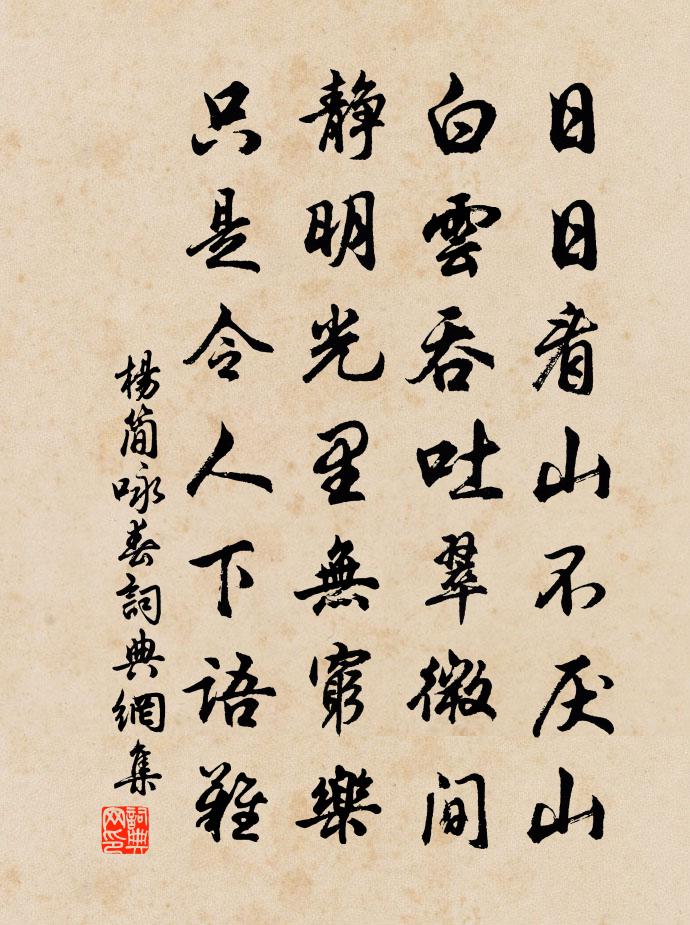 日日看山不厌山
白雲吞吐翠微间
静明光里無窮樂
只是令人下语难
楊简咏春詞典網集
詞典网印